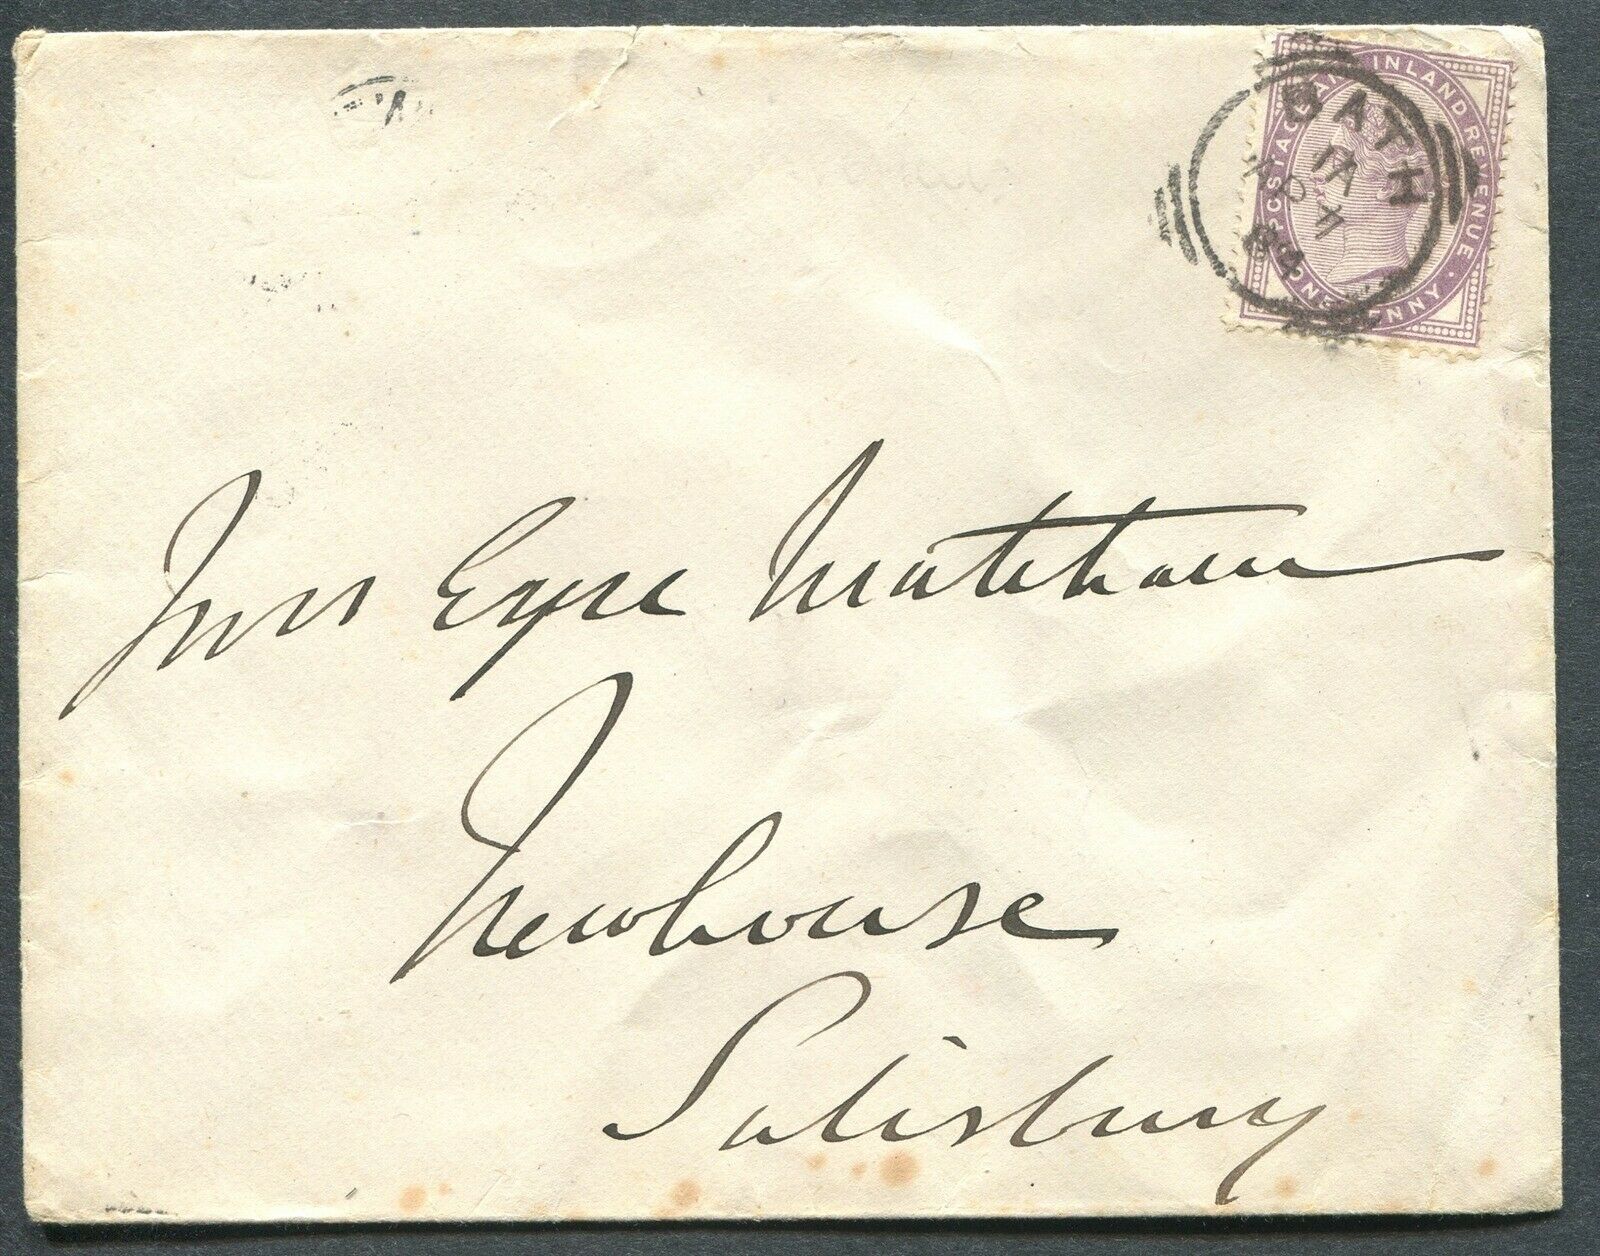 POSTAGE AND INLAND REVENUE
ONE PENNY
BATH
94
Mrs Eyre Matcham
Newhouse
Salisbury